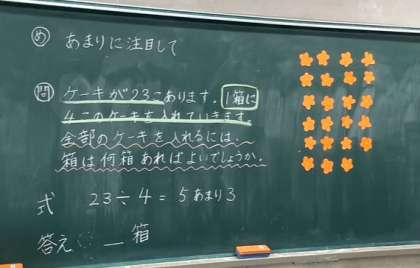 め あまりに注目して
問 ケーキが23こあります。1箱に
4このケーキを入れていきます。
全部のケーキを入れるには、
箱は何箱あればよいでしょうか。
式 23÷4=5あまり3
答え 箱